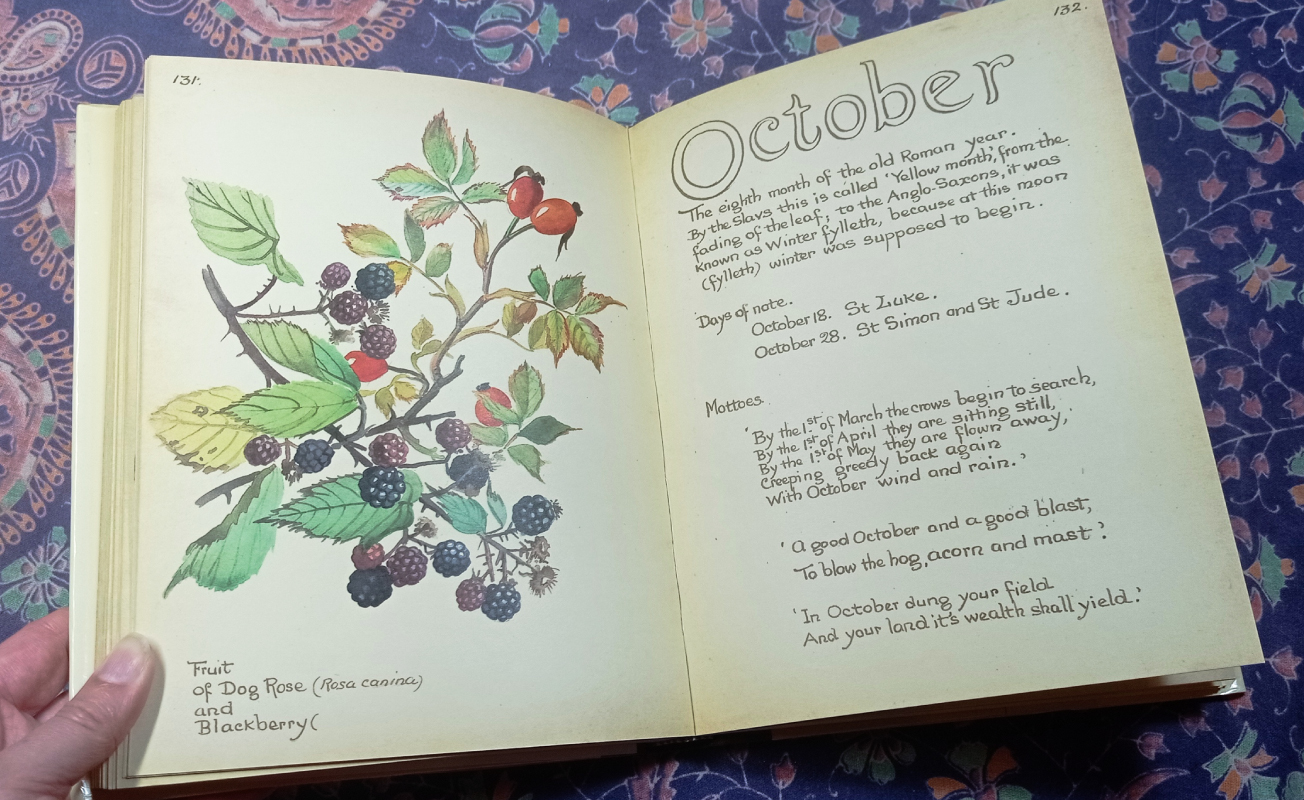 131.
Fruit
of Dog Rose (Rosa canina)
and
Blackberry(
132.
October
The eighth month of the old Roman year.
By the Slavs this is called 'Yellow month', from the
fading of the leaf; to the Anglo-Saxons, it was
known as Winter fylleth, because at this moon
(fylleth) winter was supposed to begin.
Days of note.
October 18. St Luke.
October 28. St Simon and St Jude.
Mottoes.
'By the 1st of March the crows begin to search,
By the 1st of April they are sitting still,
By the 1st of May they are flown away,
Creeping greedy back again
With October wind and rain.'
'A good October and a good blast,
To blow the hog, acorn and mast'.
'In October dung your field
And your land it's wealth shall yield.'